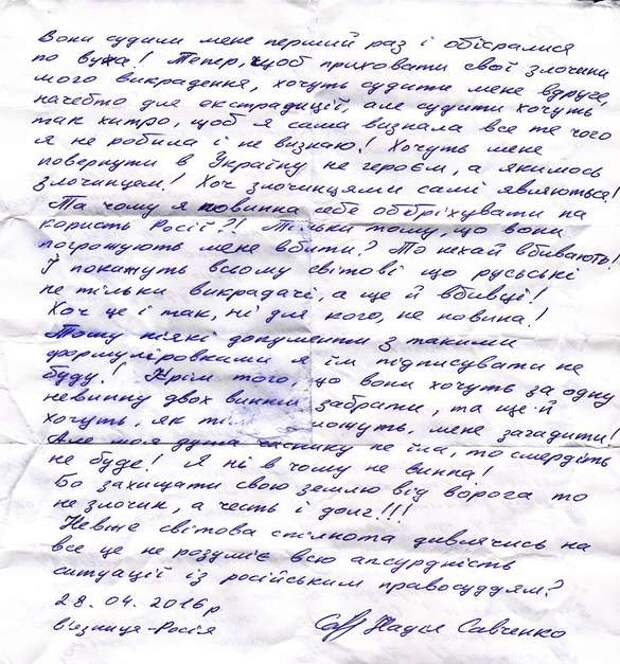 Вони судили мене перший раз і обісралися
по вуха! Тепер, щоб приховати свої злочини
мого викрадення, хочуть судити мене вдруге,
начебто для екстрадиції, але судити хочуть
так хитро, щоб я сама визнала все те чого
я не робила і не визнаю! Хочуть мене
повернути в Україну не героєм, а якимось
злочинцем! Хоч злочинцями самі являються!
Та чому я повинна себе оббріхувати на
користь Росії?! Тільки тому, що вони
погрожують мене вбити? То нехай вбивають!
І покажуть всьому світові що руські
не тільки викрадачі, а ще й вбивці!
Хоч це і так, ні для кого, не новина!
Тому ніякі документи з такими
формуліровками я їм підписувати не
буду! Крім того, що вони хочуть за одну
невинну двох винних забрати, та ще й
хочуть, як тільки можуть, мене загадити!
Але моя душа часнику не їла, то смердіть
не буде! Я ні в чому не винна!
Бо захищати свою землю від ворога то
не злочин, а честь і долг!!!
Невже світова спілнота дивлячись на
все це не розуміє всю апсурдність
ситуації із російським правосуддям?
28.04.2016р
в'язниця-Росія
Надія Савченко